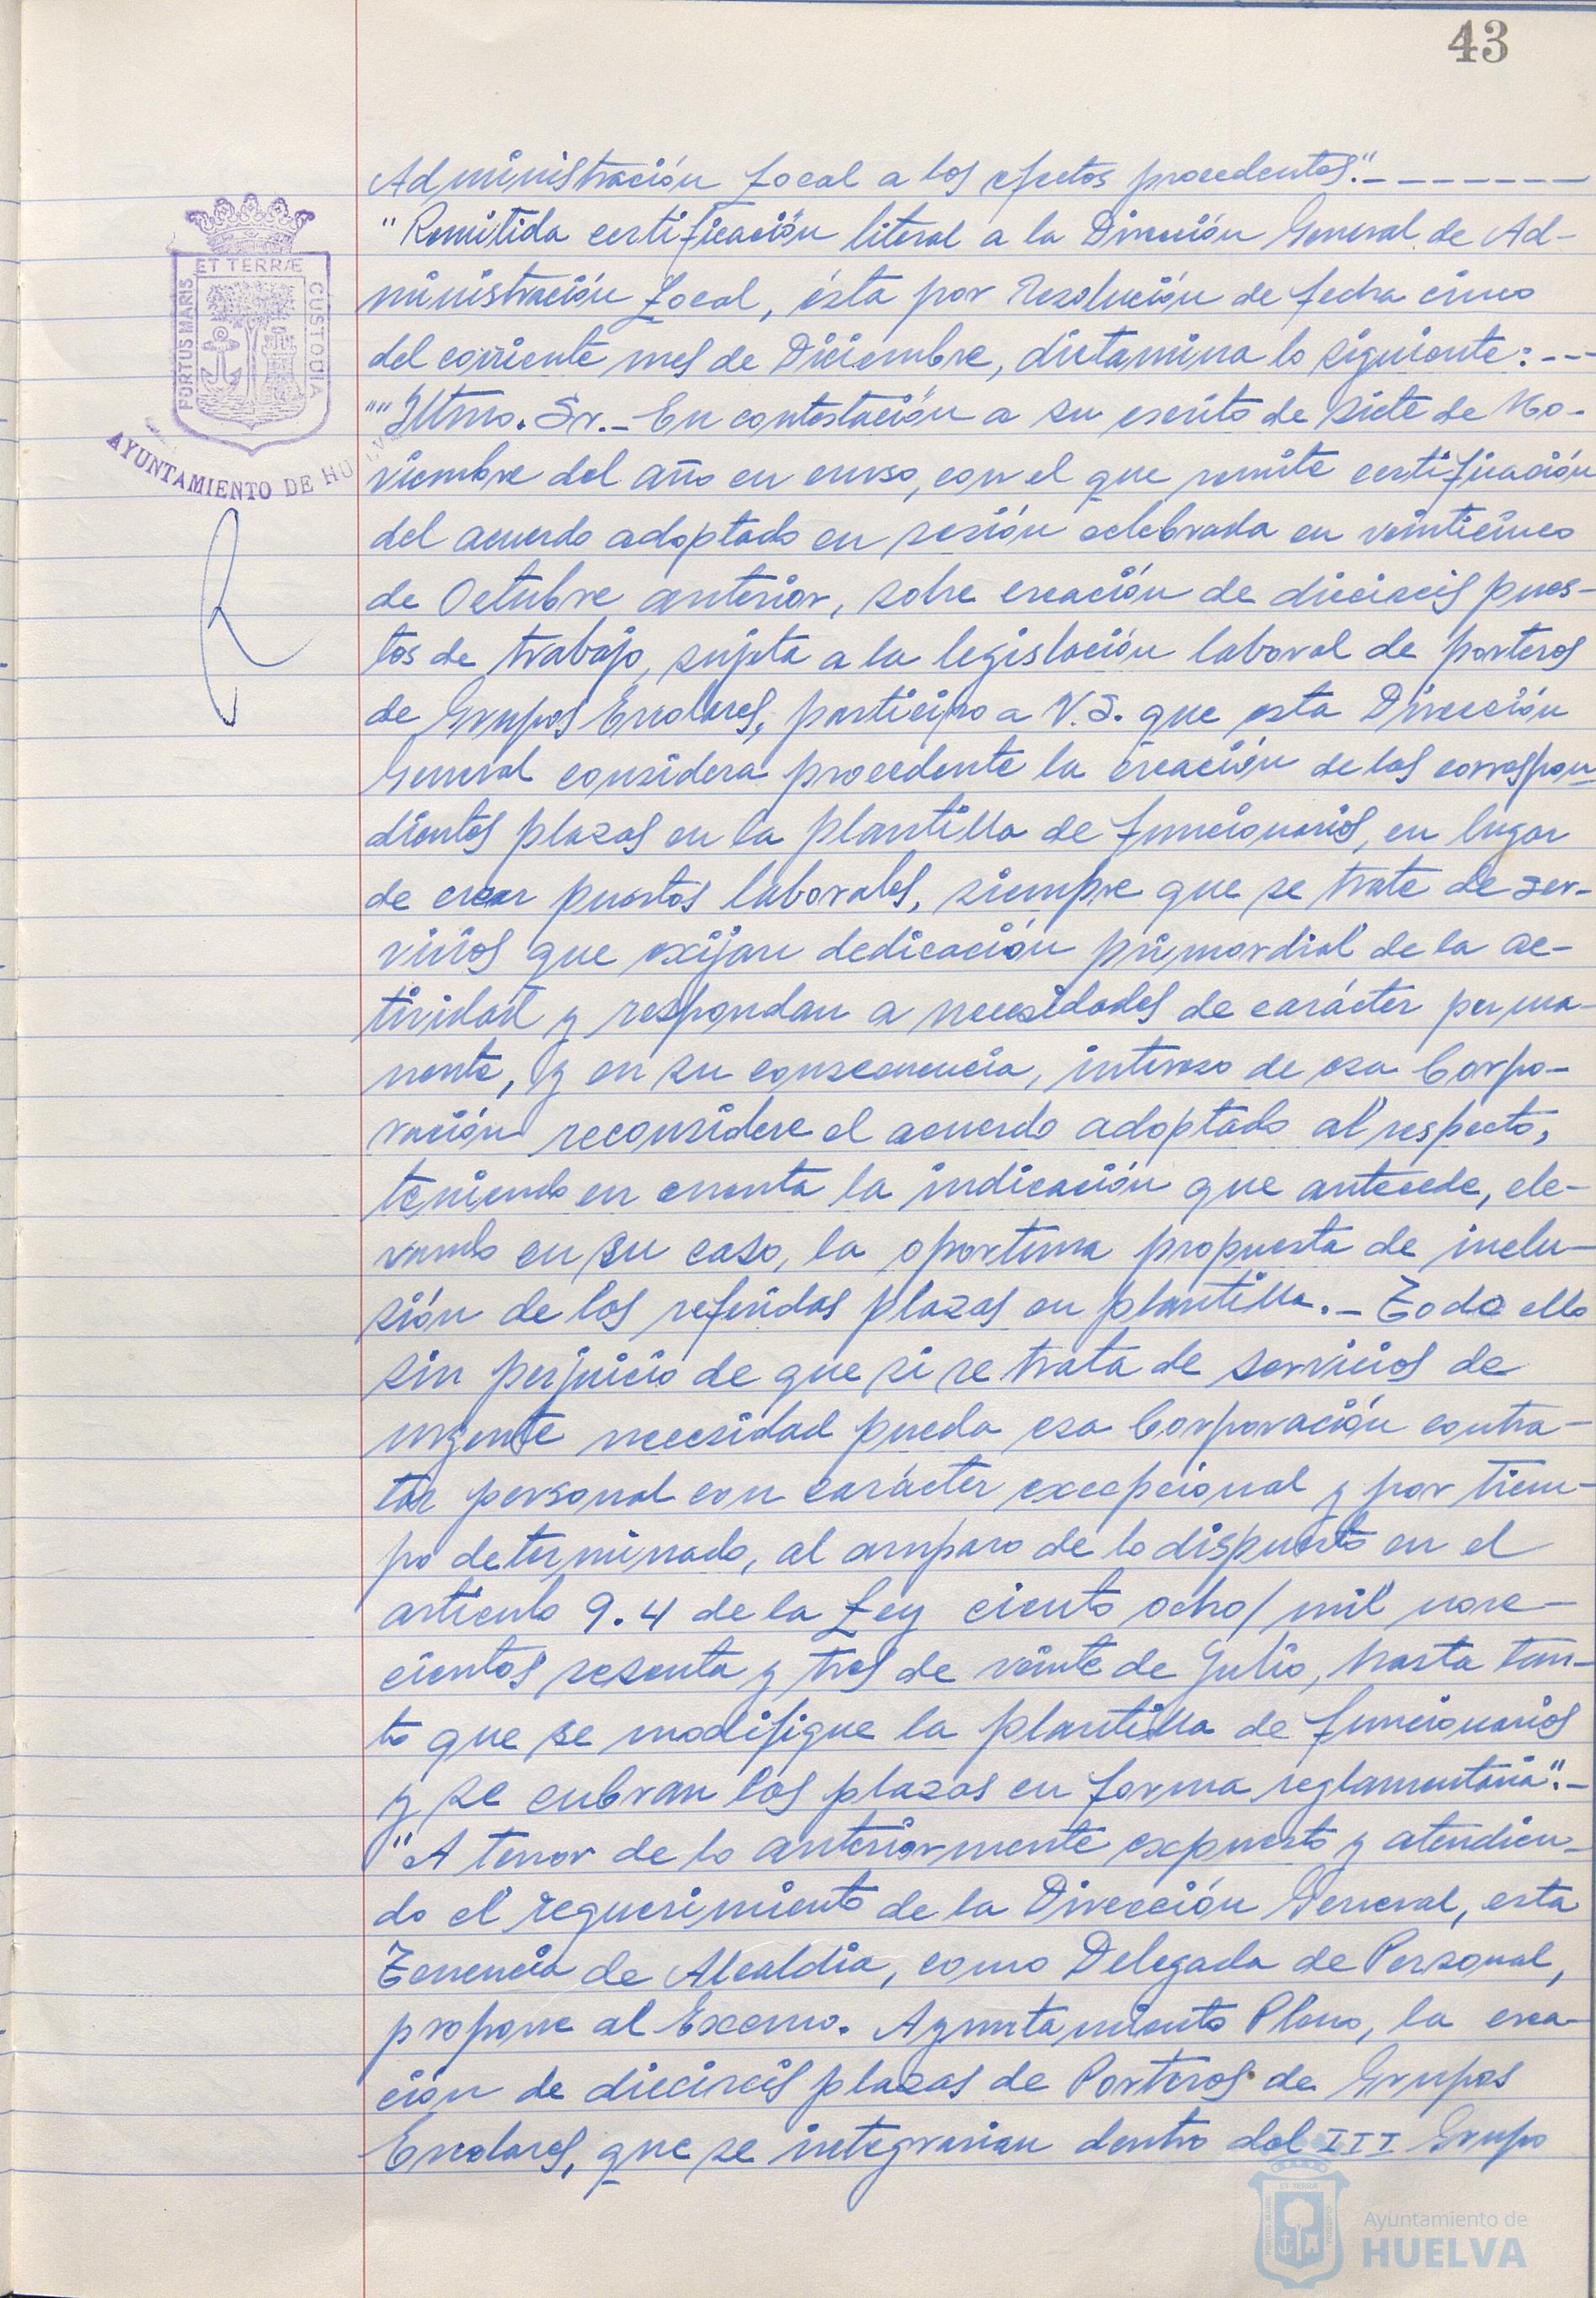 43
Administración Local a los efectos procedentes".-------
"Remitida certificación literal a la Dirección General de Ad-
ministración Local, ésta por Resolución de fecha cinco
del corriente mes de Diciembre, dictamina lo siguiente:---
""Iltmo. Sr.- En contestación a su escrito de siete de No-
viembre del año en curso, con el que remite certificación
del acuerdo adoptado en sesión celebrada en veinticinco
de Octubre anterior, sobre creación de dieciseis pues-
tos de trabajo, sujeta a la legislación laboral de porteros
de Grupos Escolares, participo a V.S. que esta Dirección
General considera procedente la creación de las correspon-
dientes plazas en la plantilla de funcionarios, en lugar
de crear puestos laborales, siempre que se trate de ser-
vicios que exijan dedicación primordial de la ac-
tividad y respondan a necesidades de carácter perma-
nente, y en su consecuencia, intereso de esa Corpo-
ración reconsidere el acuerdo adoptado al respecto,
teniendo en cuenta la indicación que antecede, ele-
vando en su caso, la oportuna propuesta de inclu-
sión de las referidas plazas en plantilla.- Todo ello
sin perjuicio de que si se trata de servicios de
urgente necesidad pueda esa Corporación contra-
tar personal con carácter excepcional y por tiem-
po determinado, al amparo de lo dispuesto en el
artículo 9.4 de la Ley ciento ocho/mil nove-
cientos sesenta y tres de veinte de Julio, hasta tan-
to que se modifique la plantilla de funcionarios
y se cubran las plazas en forma reglamentaria".-
"A tenor de lo anteriormente expuesto y atendien-
do el requerimiento de la Dirección General, esta
Tenencia de Alcaldia, como Delegada de Personal,
propone al Excmo. Ayuntamiento Pleno, la crea-
ción de dieciseis plazas de Porteros de Grupos
Escolares, que se integrarian dentro del III Grupo
PORTUS MARIS
ET TERRÆ
CUSTODIA
AYUNTAMIENTO DE HUELVA
Ayuntamiento de
HUELVA